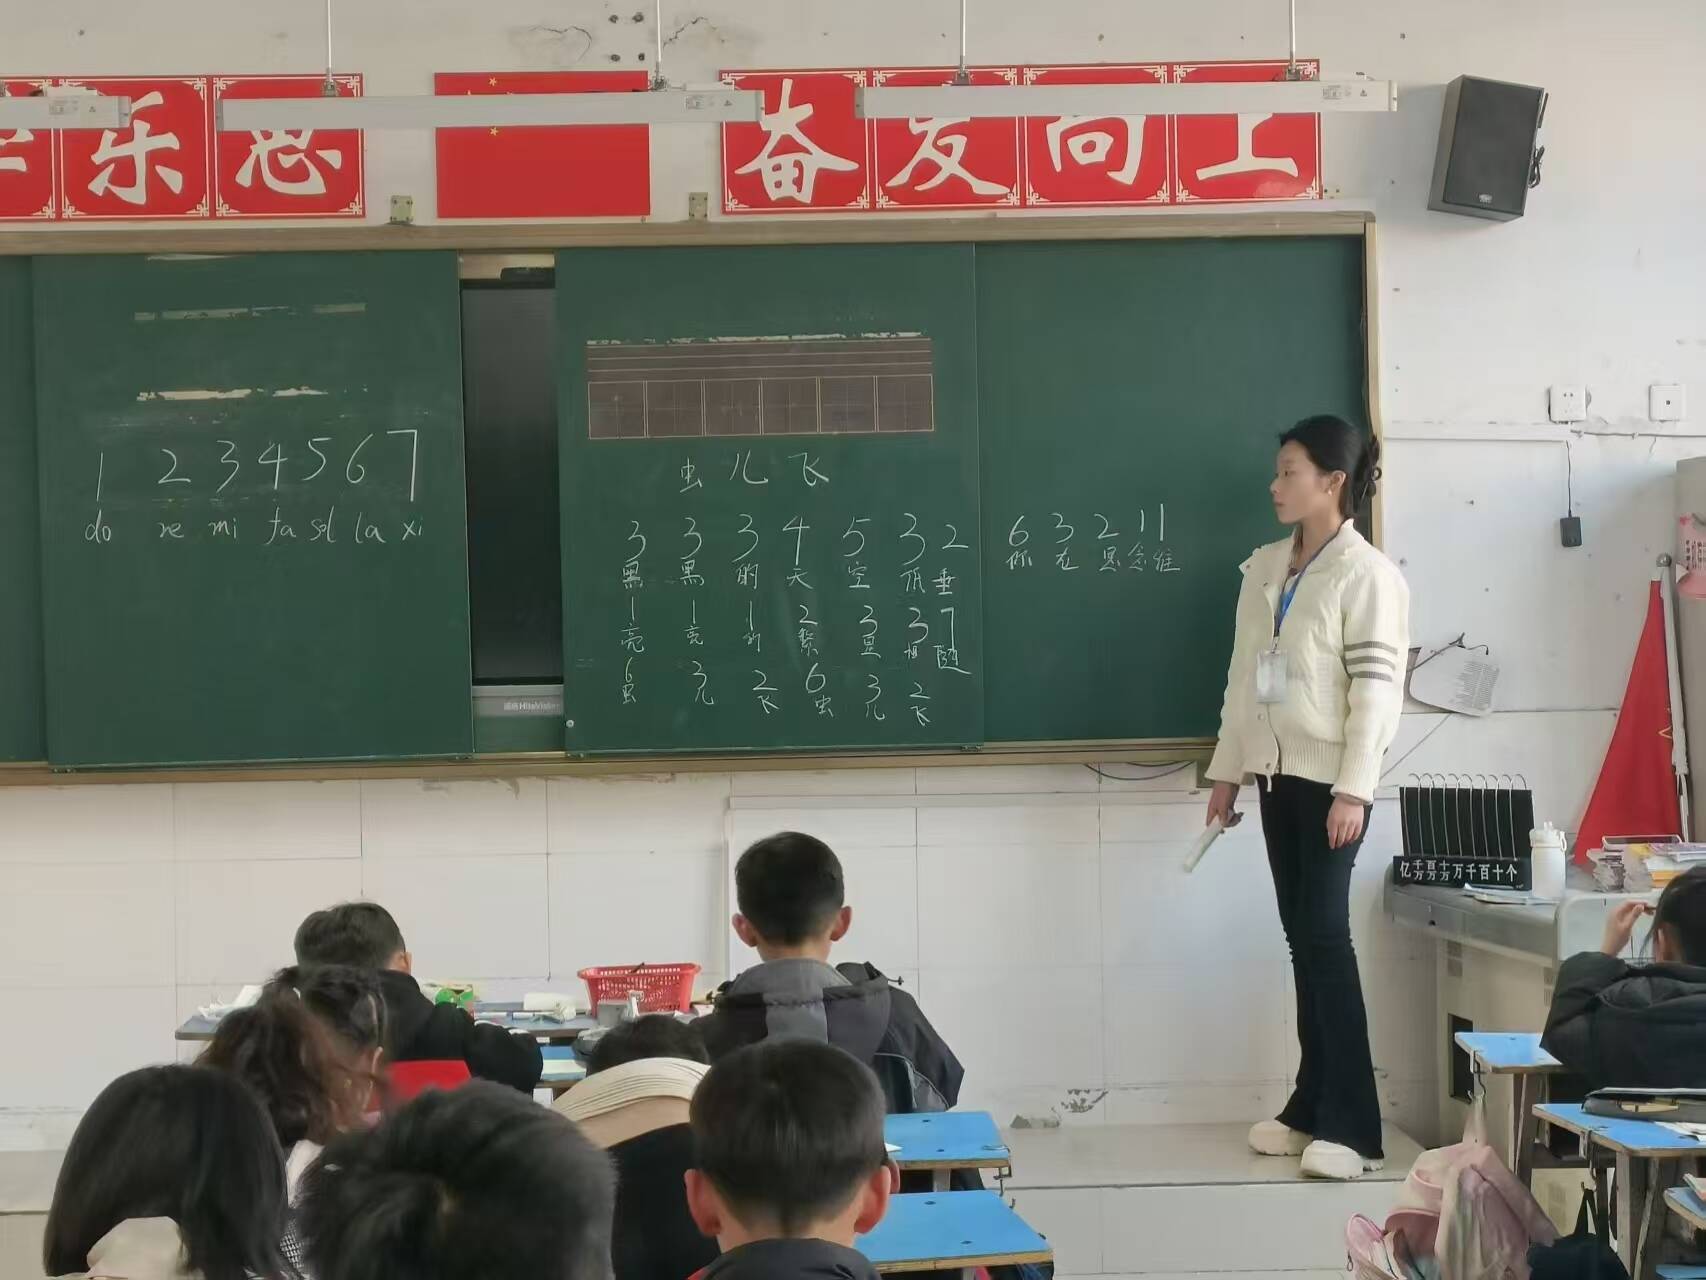 乐思
奋发向上
1 2 3 4 5 6 7
do re mi fa sol la xi
虫儿飞
3 3 3 4 5 3 2
黑黑的天空低垂
1 1 1 2 3 3 7
亮亮的繁星相随
6 3 2 6 3 2
虫儿飞虫儿飞
6 3 2 1 1
你在思念谁
HiteVision
亿千万百万十万万千百十个